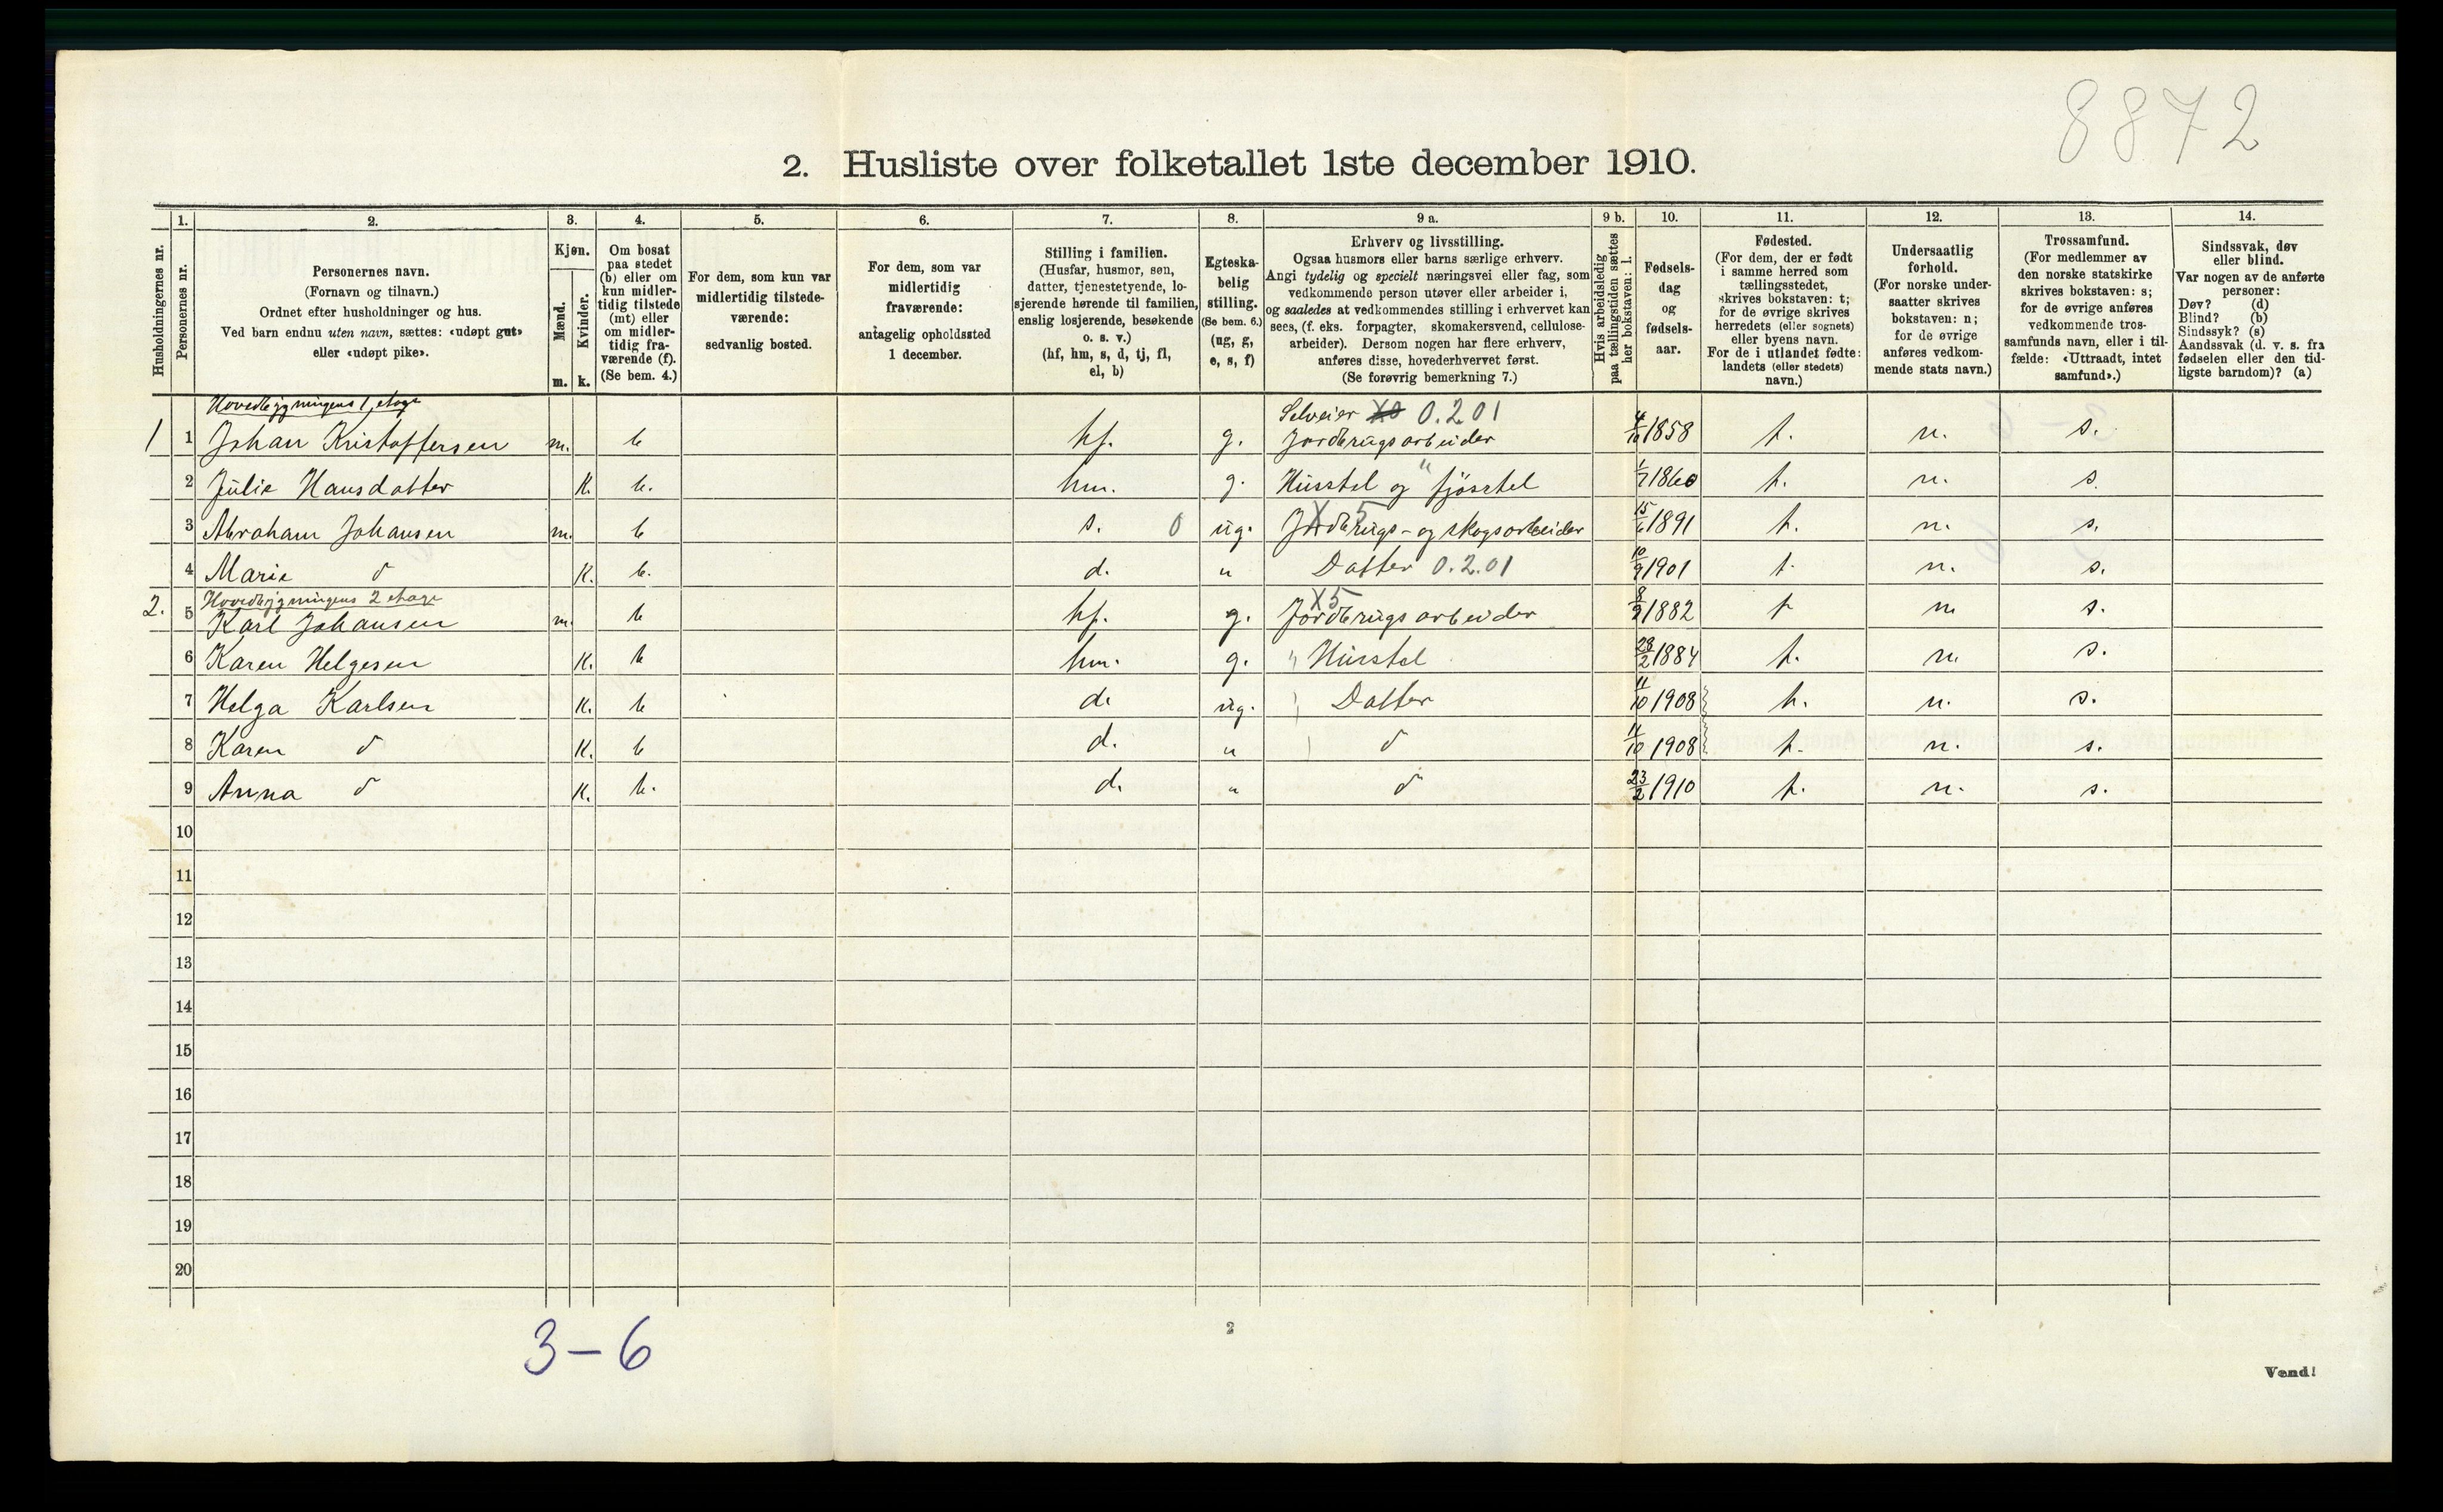 8872
2. Husliste over folketallet 1ste december 1910.
Husholdningernes nr.
1.
Personernes nr.
2.
Personernes navn.
(Fornavn og tilnavn.)
Ordnet efter husholdninger og hus.
Ved barn endnu uten navn, sættes: «udøpt gut»
eller «udøpt pike».
3.
Kjøn.
Mænd.
Kvinder.
m. k.
4.
Om bosat
paa stedet
(b) eller om
kun midler-
tidig tilstede
(mt) eller
om midler-
tidig fra-
værende (f).
(Se bem. 4.)
5.
For dem, som kun var
midlertidig tilstede-
værende:
sedvanlig bosted.
6.
For dem, som var
midlertidig
fraværende:
antagelig opholdssted
1 december.
7.
Stilling i familien.
(Husfar, husmor, søn,
datter, tjenestetyende, lo-
sjerende hørende til familien,
enslig losjerende, besøkende
o. s. v.)
(hf, hm, s, d, tj, fl,
el, b)
8.
Egteska-
belig
stilling.
(Se bem. 6.)
(ug, g,
e, s, f)
9 a.
Erhverv og livsstilling.
Ogsaa husmors eller barns særlige erhverv.
Angi tydelig og specielt næringsvei eller fag, som
vedkommende person utøver eller arbeider i,
og saaledes at vedkommendes stilling i erhvervet kan
sees, (f. eks. forpagter, skomakersvend, cellulose-
arbeider). Dersom nogen har flere erhverv,
anføres disse, hovederhvervet først.
(Se forøvrig bemerkning 7.)
9 b.
Hvis arbeidsledig
paa tællingstiden sættes
her bokstaven: l.
10.
Fødsels-
dag
og
fødsels-
aar.
11.
Fødested.
(For dem, der er født
i samme herred som
tællingsstedet,
skrives bokstaven: t;
for de øvrige skrives
herredets (eller sognets)
eller byens navn.
For de i utlandet fødte:
landets (eller stedets)
navn.)
12.
Undersaatlig
forhold.
(For norske under-
saatter skrives
bokstaven: n;
for de øvrige
anføres vedkom-
mende stats navn.)
13.
Trossamfund.
(For medlemmer av
den norske statskirke
skrives bokstaven: s;
for de øvrige anføres
vedkommende tros-
samfunds navn, eller i til-
fælde: «Uttraadt, intet
samfund».)
14.
Sindssvak, døv
eller blind.
Var nogen av de anførte
personer:
Døv? (d)
Blind? (b)
Sindssyk? (s)
Aandssvak (d. v. s. fra
fødselen eller den tid-
ligste barndom)? (a)
Hovedbygningens 1 etage Selveier 0.2.01
1 1 Johan Kristoffersen m. b hf. g. Jordbrugsarbeider 4/10 1858 t. n. s.
2 Julie Hansdatter k. b. hm. g. Husstel og fjøsstel 1/7 1860 t. n. s.
3 Abraham Johansen m. b s. 0 ug. X 5 Jordbrugs- og skogsarbeider 15/6 1891 t. n. s.
4 Marie d k. b. d. " Datter 0.2.01 10/9 1901 t. n. s.
Hovedbygningens 2 etage X5
2. 5 Karl Johansen m. b hf. g. Jordbrugsarbeider 8/9 1882 t n. s.
6 Karen Helgesen k. b hm. g. " Husstel 28/2 1884 t. n. s.
7 Helga Karlsen k. b d. ug. Datter 11/10 1908 t. n. s.
8 Karen d k. b d. " d 11/10 1908 t. n. s.
9 Anna d k. b. d. " d 23/2 1910 t. n. s.
10
11
12
13
14
15
16
17
18
19
20
3-6
2
Vend!